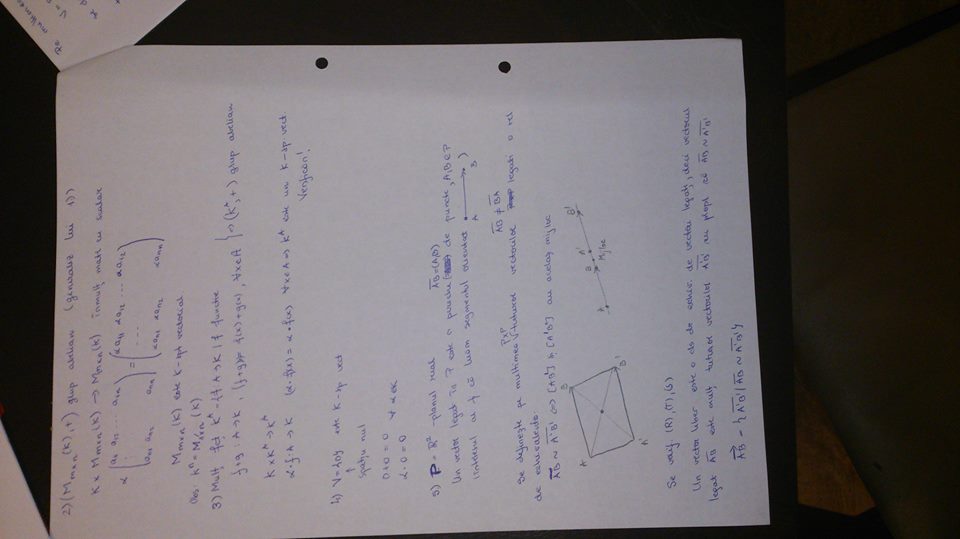 2) (M_{m×n}(K), +) grup abelian (generaliz lui 1))
K × M_{m×n}(K) → M_{m×n}(K) înmulț matr cu scalar
α (a_{11} a_{12} ... a_{1n} ... a_{n1} a_{n2} a_{nn}) = (αa_{11} αa_{12} ... αa_{12} ... αa_{n1} αa_{n2} αa_{nn})
M_{m×n}(K) este K-spț vectorial
Obs: K^n = M_{1×n}(K)
3) Mulț fcț K^A = {f: A → K | f funcție
f+g : A → K, (f+g)(x) = f(x)+g(x), ∀x∈A } ⇒ (K^A, +) grup abelian
K × K^A → K^A
α·f : A → K (α·f)(x) = α·f(x) ∀x∈A ⇒ K^A este un K-sp vect.
Verificăm!
4) V={0} este K-sp vect
↑
spațiu nul
0+0=0
α·0=0 ∀ α∈K
5) P = R² - planul real AB=(A,B)
Un vector legat în P este o pereche de puncte, A,B∈P
că luăm segmentul orientat A B )
AB ≠ BA
P×P
Se definește pe mulțimea tuturor vectorilor legați o rel
de echivalență
AB ~ A'B' ⇔ [AB'] și [A'B] au același mijloc
A B A' B'
A B A' B' Mijloc
Se verif. (R), (T), (S)
Un vector liber este o cls de echiv. de vectori legați, deci vectorul
legat AB este mulț tuturor vectorilor A'B' cu propr că AB ~ A'B'
AB = { A'B' / AB ~ A'B' }
Pe mulțimea
V =